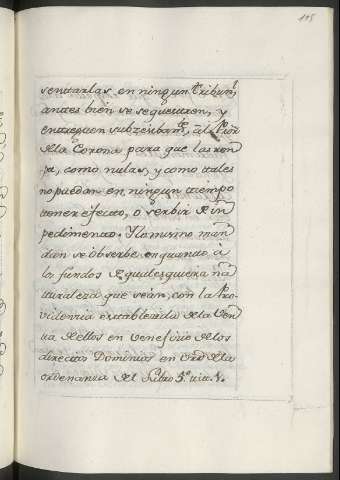 115
sentarlas, en ningun tribun.l
antes bien se sequestren, y
entreguen subrreubam.te, al Pror
dela Corona para que las rom
pa, como nulas, y como tales
no puedan en ningun tiempo
tener efecto, ó serbir de im
pedimento. Y lo mismo man
dan se observe en quanto, á
los fundos de qualesquiera na
turaleza que sean, con la Pro
videncia establecida de la Ven
ta de ellos en veneficio de los
directos Dominios en orn dela
ordenanza del Libro 5.º tit. V.